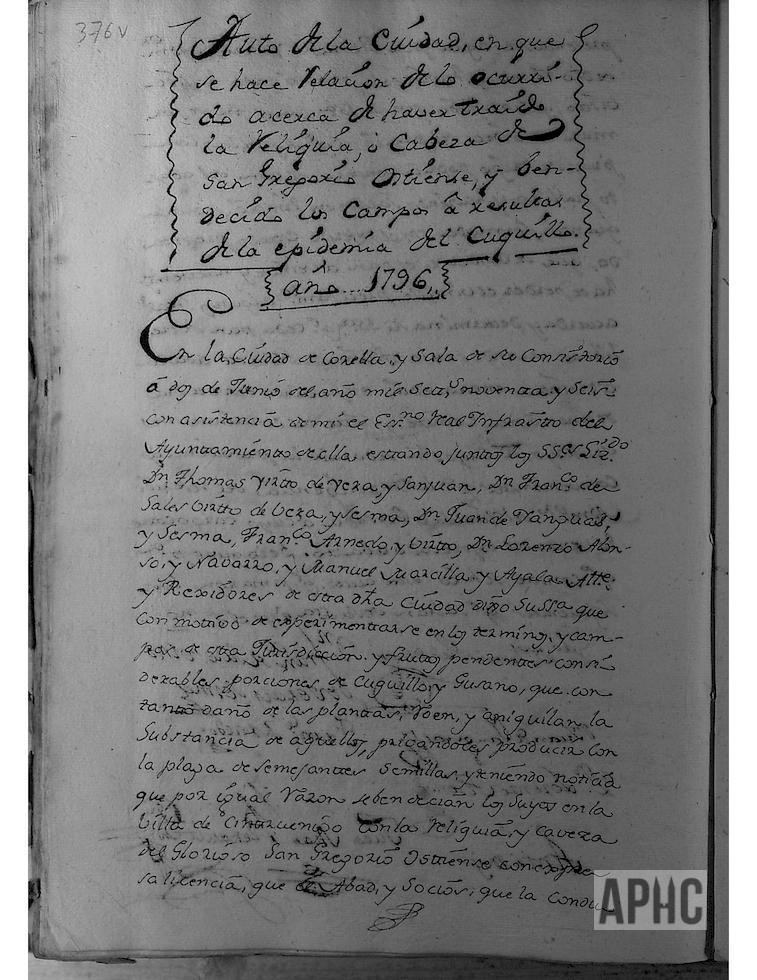 376v
Auto de la Ciudad, en que
se hace Relacion de lo ocurri-
do acerca de haver traido
la Reliquia, ò Cabeza de
San Gregorio Ostiense, y ben-
decido los Campos â resultas
de la epidemia del Cuquillo.
año... 1796,,
En la Ciudad de Corella, y Sala de su Consistorio
á dos de Junio del año mil setᵒ noventa y seis
con asistencia de mi el Esⁿᵒ Real Infrasᵗᵒ del
Ayuntamiento de ella estando juntos los SSᵉˢ Lizᵈᵒ
Dⁿ Thomas Virto de Vera, y Sanjuan, Dⁿ Franᶜᵒ de
Sales Virto de Vera, y Sesma, Dⁿ Juan de Yanguas,
y Sesma, Franᶜᵒ Arnedo, y Virto, Dⁿ Lorenzo Alon-
so, y Navarro, y Manuel Marcilla y Ayala Allᵉ
y Rexidores de esta dhᵃ Ciudad dixo Sussᵃ que
con motivo de experimentarse en los terminos, y cam-
pos de esta Jurisdiccion, y frutos pendentes consi
derables porciones de Cuquillo, y Gusano, que con
tanto daño de las plantas, roen, y aniquilan la
Substancia de aquellos, privandoles producir con
la plaga de semejantes Semillas, y teniendo noticia
que por igual razon se bendecian los suyos en la
Villa de Cintruenigo con la Reliquia, y Caveza
del Glorioso San Gregorio Ostiense con expre
sa licencia, que el Abad, y Socios, que la condu
APHC